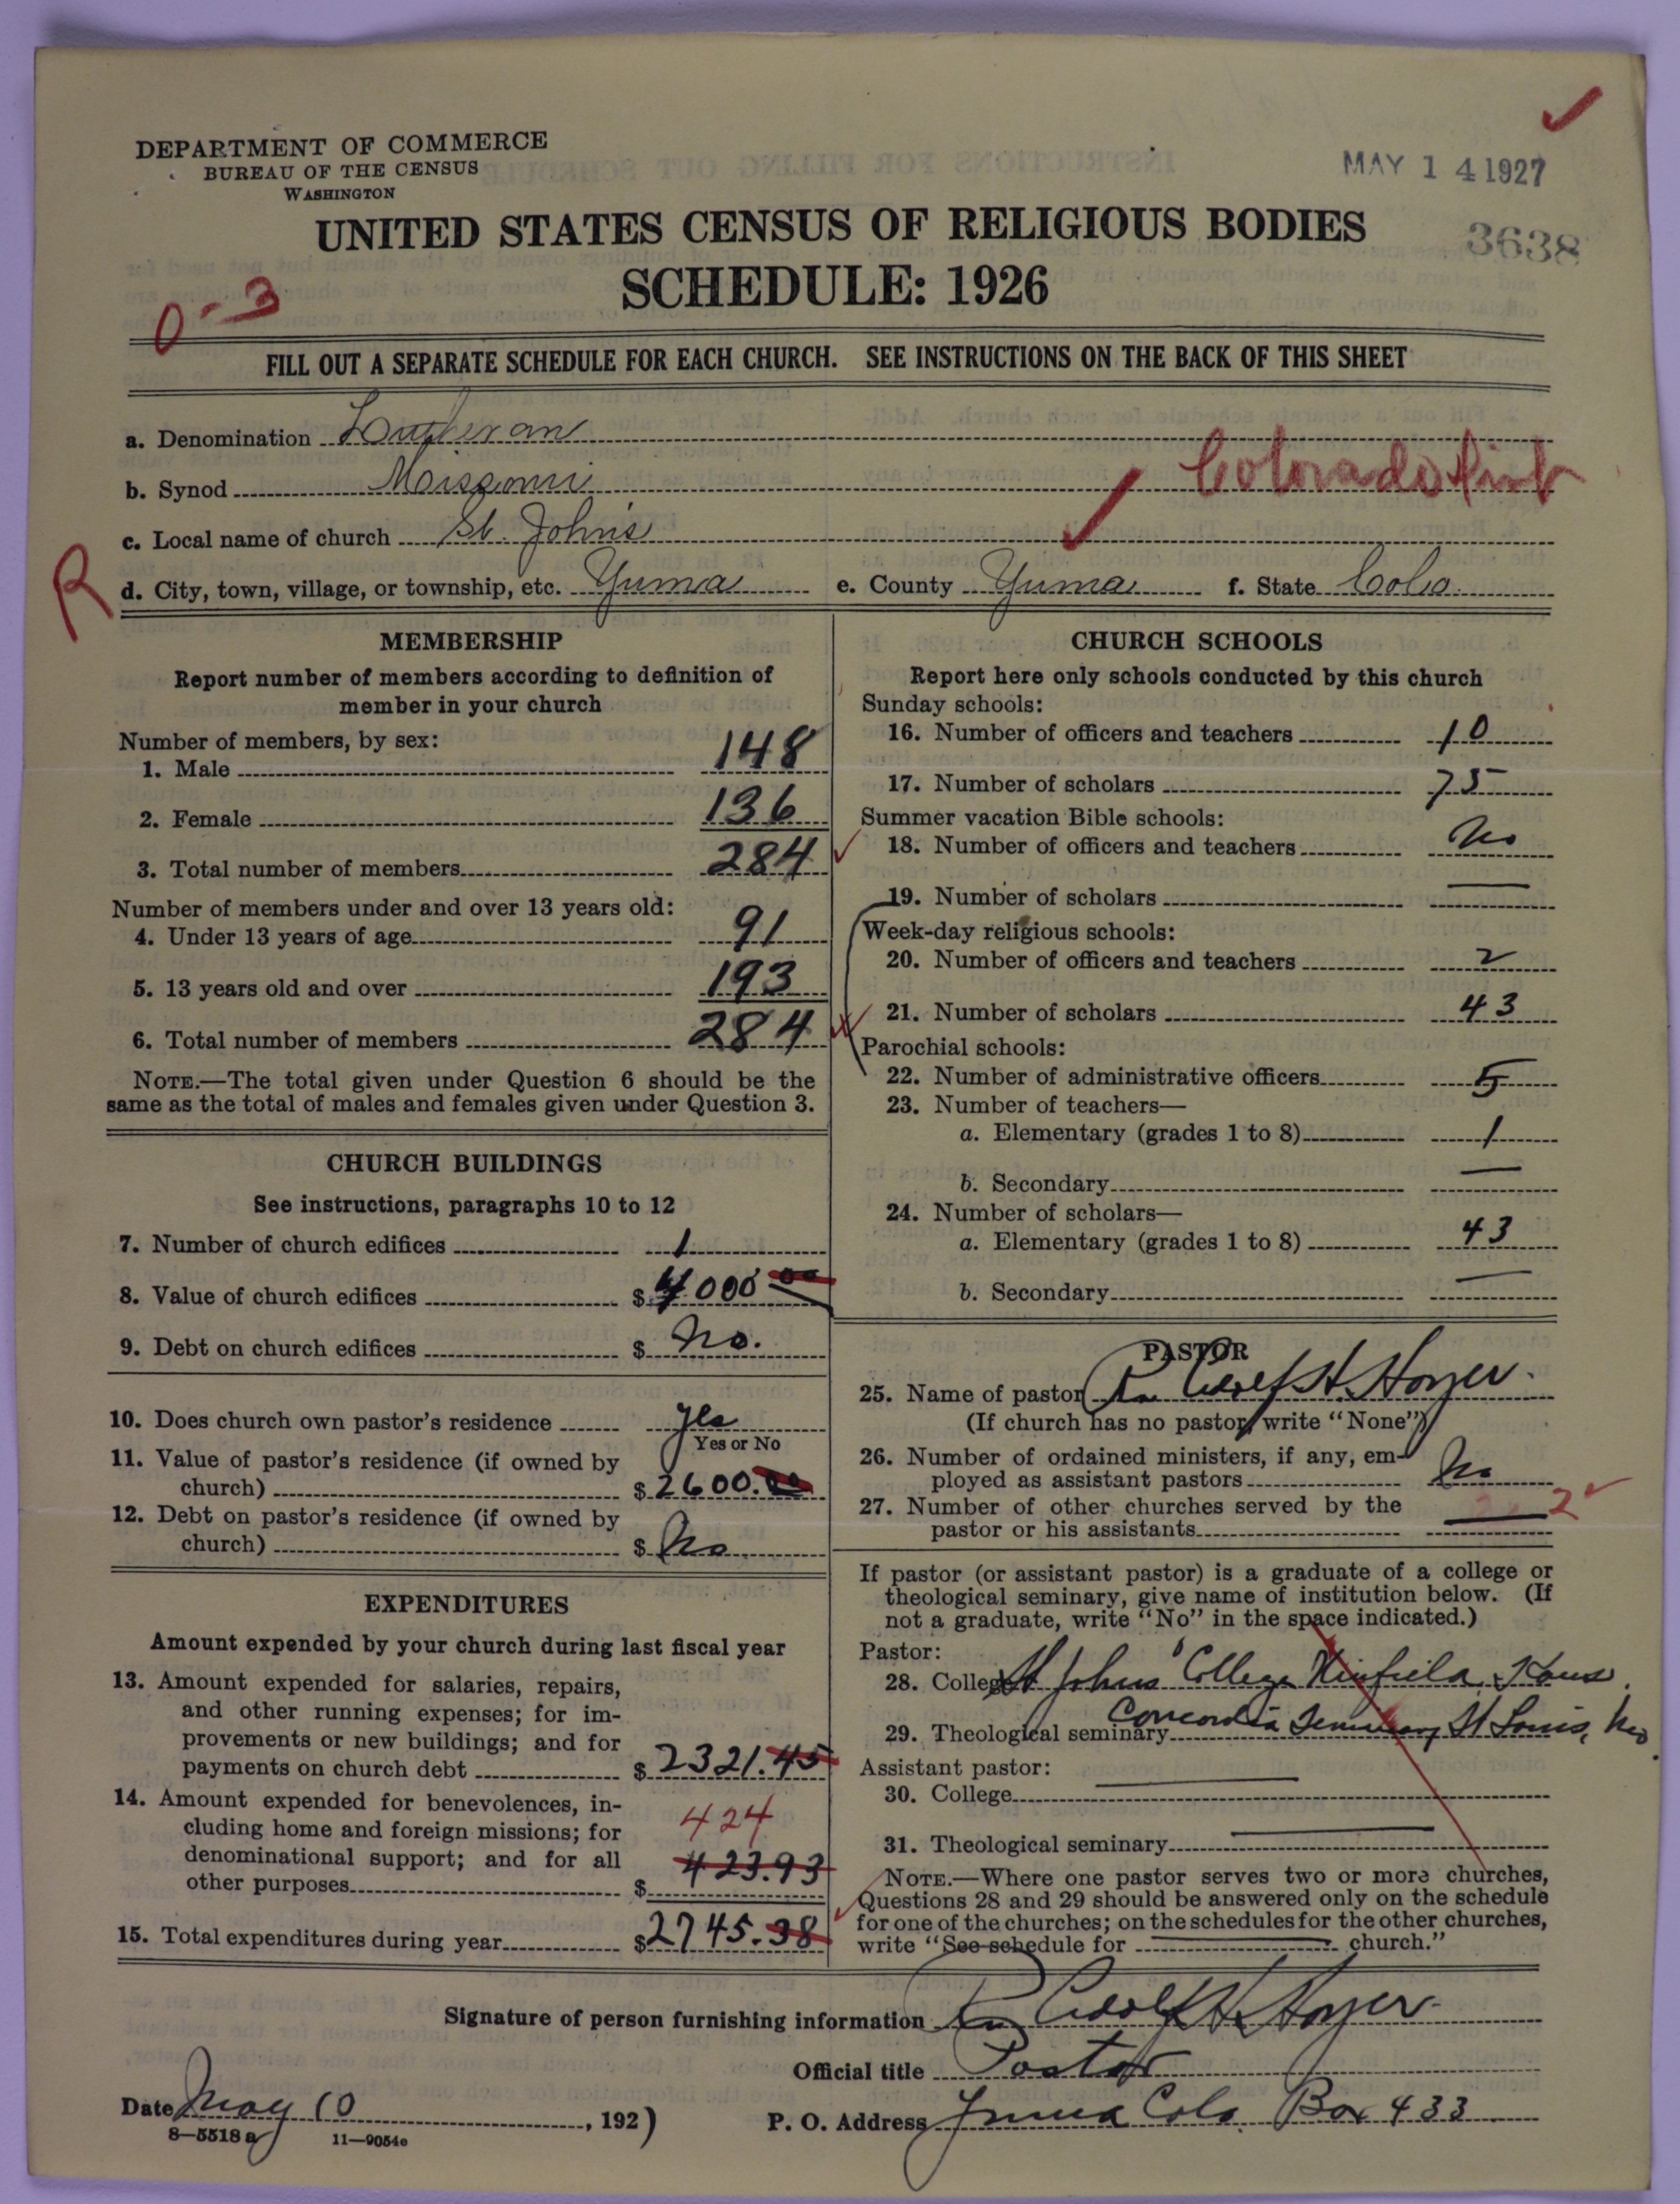 DEPARTMENT OF COMMERCE
BUREAU OF THE CENSUS
WASHINGTON
MAY 14 1927
UNITED STATES CENSUS OF RELIGIOUS BODIES
3638
SCHEDULE: 1926
0-3
FILL OUT A SEPARATE SCHEDULE FOR EACH CHURCH. SEE INSTRUCTIONS ON THE BACK OF THIS SHEET
a. Denomination Lutheran
b. Synod Missouri Colorado Dist
c. Local name of church St. John's
R
d. City, town, village, or township, etc. Yuma e. County Yuma f. State Colo.
MEMBERSHIP
Report number of members according to definition of
member in your church
Number of members, by sex:
1. Male 148
2. Female 136
3. Total number of members 284
Number of members under and over 13 years old:
4. Under 13 years of age 91
5. 13 years old and over 193
6. Total number of members 284
NOTE.—The total given under Question 6 should be the
same as the total of males and females given under Question 3.
CHURCH BUILDINGS
See instructions, paragraphs 10 to 12
7. Number of church edifices 1
8. Value of church edifices $ 4000 00
9. Debt on church edifices $ no.
10. Does church own pastor's residence yes
Yes or No
11. Value of pastor's residence (if owned by
church) $ 2600.00
12. Debt on pastor's residence (if owned by
church) $ No
EXPENDITURES
Amount expended by your church during last fiscal year
13. Amount expended for salaries, repairs,
and other running expenses; for im-
provements or new buildings; and for
payments on church debt $ 2321.45
14. Amount expended for benevolences, in-
cluding home and foreign missions; for 424
denominational support; and for all
other purposes $ 423.93
15. Total expenditures during year $ 2745.38
CHURCH SCHOOLS
Report here only schools conducted by this church
Sunday schools:
16. Number of officers and teachers 10
17. Number of scholars 75
Summer vacation Bible schools:
18. Number of officers and teachers No
19. Number of scholars —
Week-day religious schools:
20. Number of officers and teachers 2
21. Number of scholars 43
Parochial schools:
22. Number of administrative officers 5
23. Number of teachers—
a. Elementary (grades 1 to 8) 1
b. Secondary —
24. Number of scholars—
a. Elementary (grades 1 to 8) 43
b. Secondary —
PASTOR
25. Name of pastor Adolf H. Hoyer.
(If church has no pastor, write "None")
26. Number of ordained ministers, if any, em-
ployed as assistant pastors No
27. Number of other churches served by the
pastor or his assistants — 2
If pastor (or assistant pastor) is a graduate of a college or
theological seminary, give name of institution below. (If
not a graduate, write "No" in the space indicated.)
Pastor:
28. College St Johns' College Winfield, Kans.
29. Theological seminary Concordia Seminary St Louis, Mo.
Assistant pastor:
30. College —
31. Theological seminary —
NOTE.—Where one pastor serves two or more churches,
Questions 28 and 29 should be answered only on the schedule
for one of the churches; on the schedules for the other churches,
write "See schedule for — church."
Signature of person furnishing information Adolf H. Hoyer
Official title Pastor
Date May 10, 1927
P. O. Address Yuma Colo. Box 433
8—5518 a 11—9054e